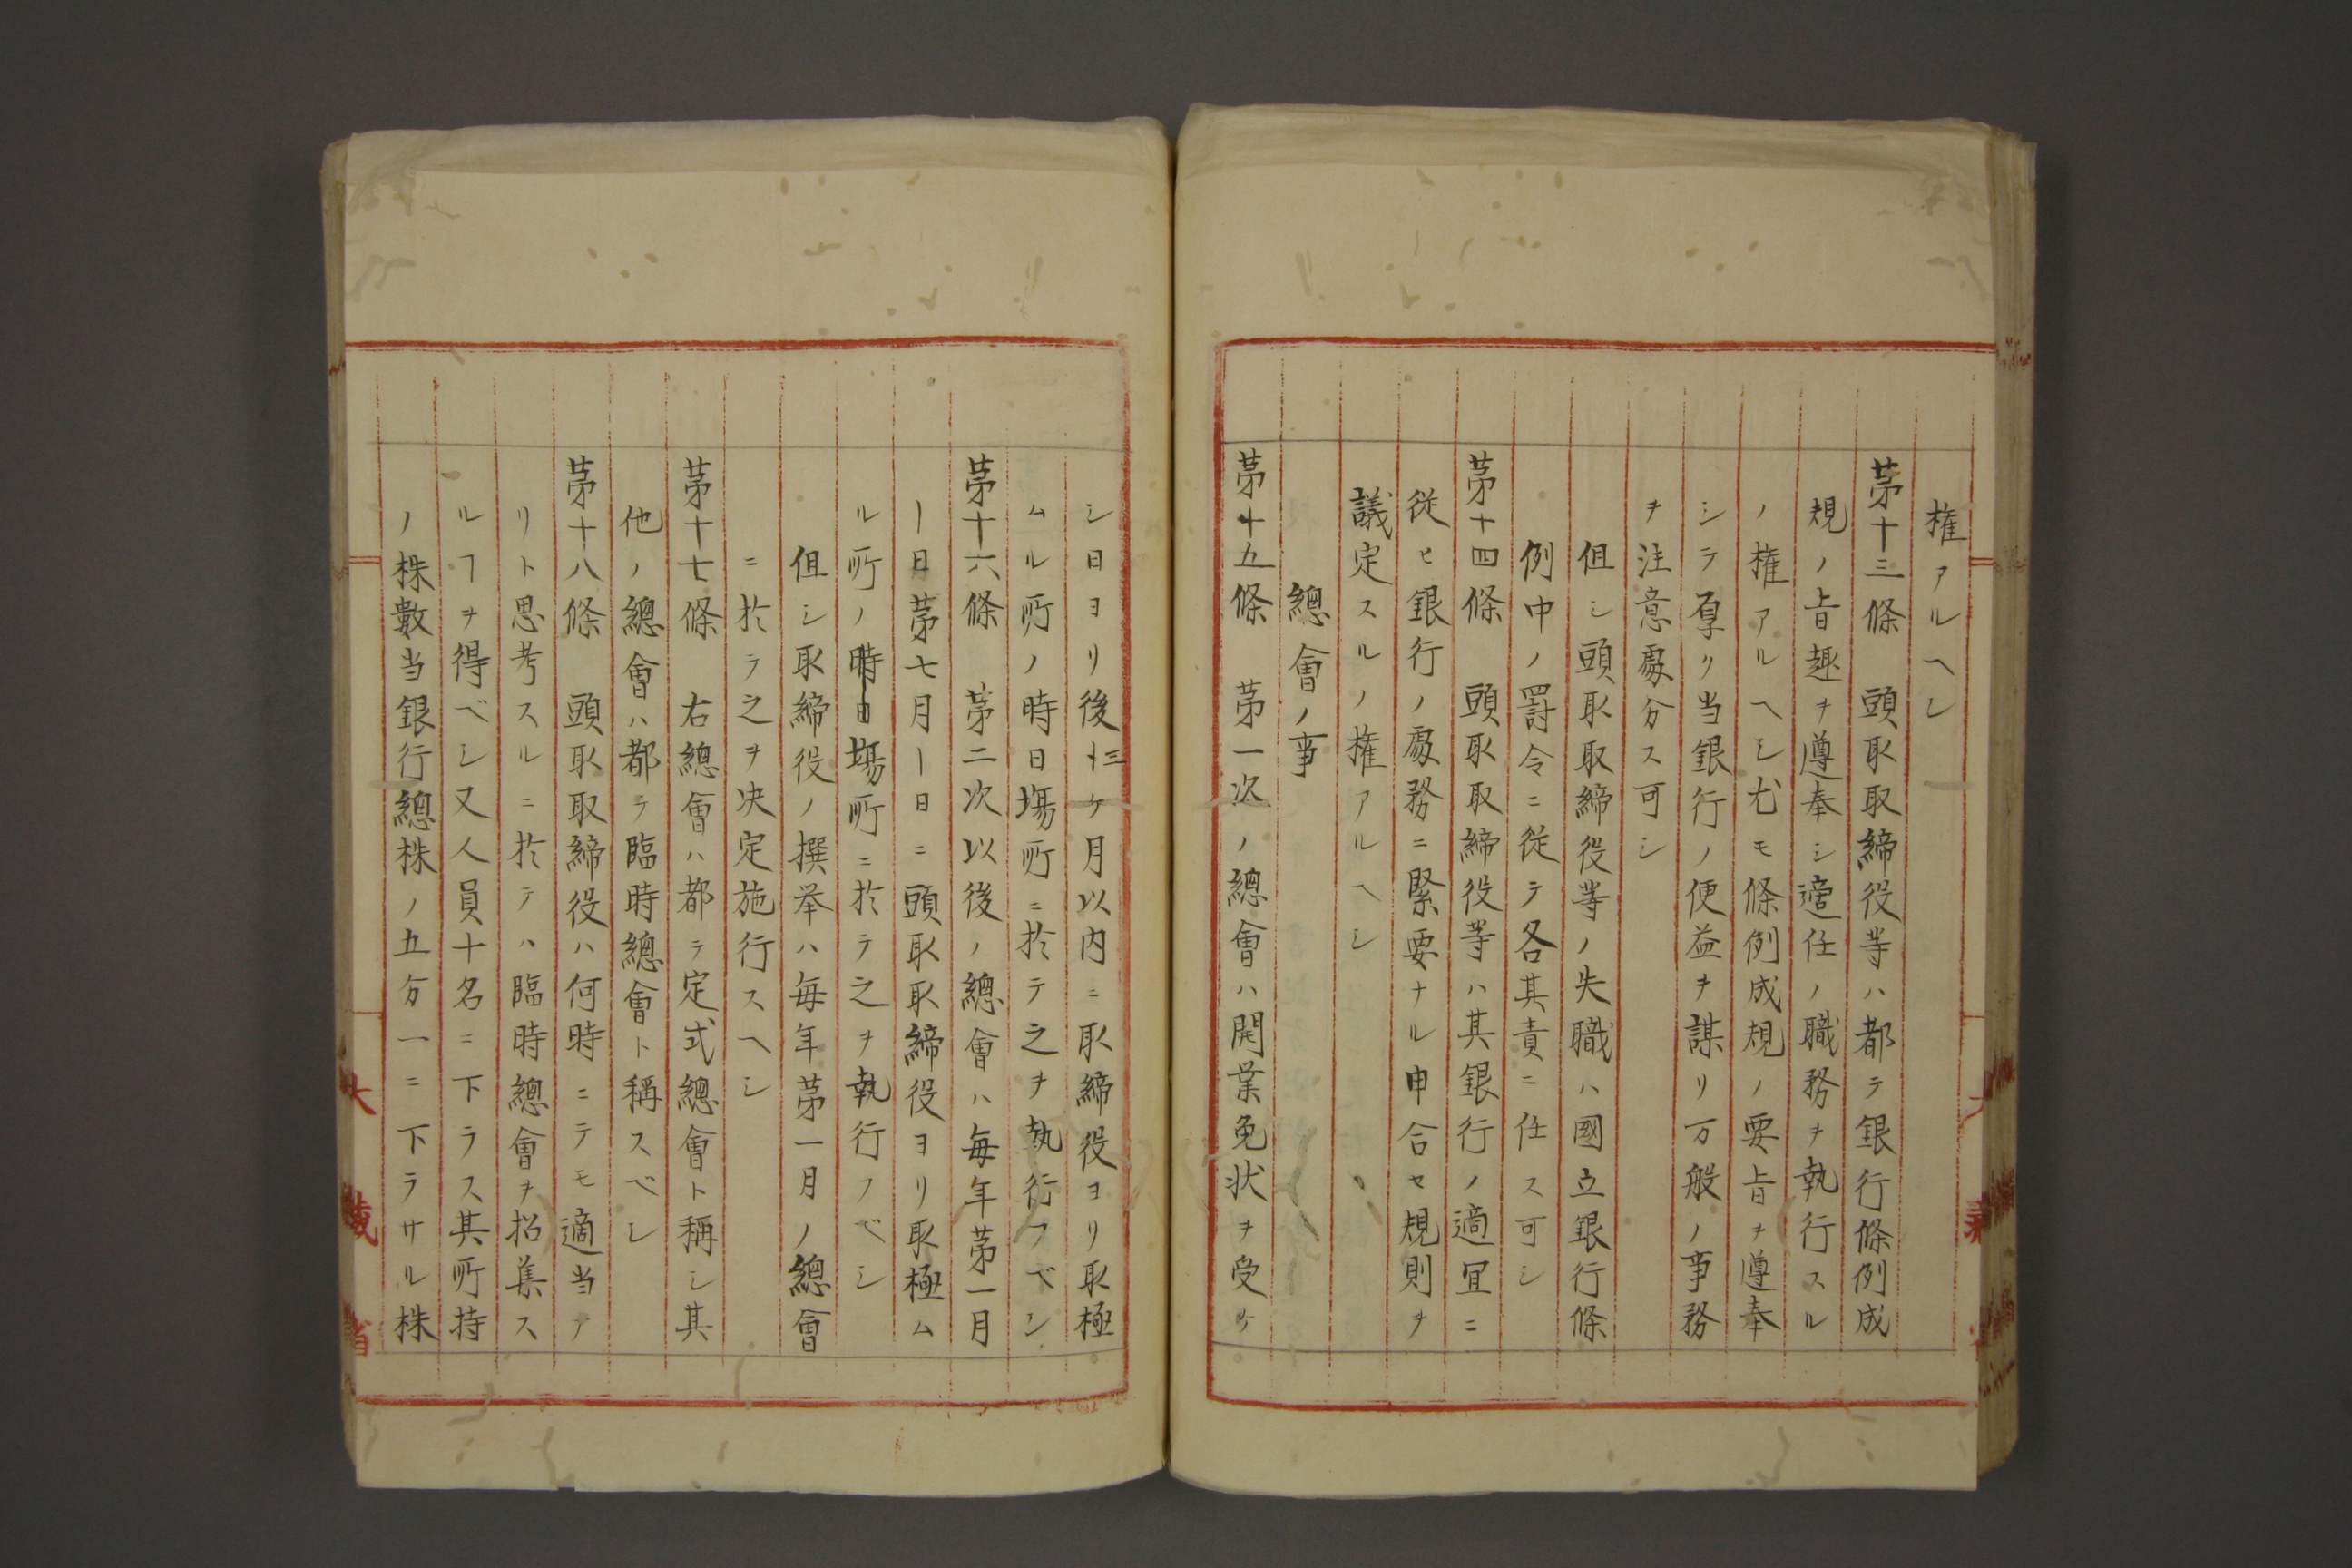 権アルヘシ
第十三條　頭取取締役等ハ都テ銀行條例成
規ノ旨趣ヲ遵奉シ適任ノ職務ヲ執行スル
ノ権アルヘシ尤モ條例成規ノ要旨ヲ遵奉
シテ厚ク当銀行ノ便益ヲ謀リ万般ノ事務
ヲ注意處分ス可シ
但シ頭取取締役等ノ失職ハ國立銀行條
例中ノ罸令ニ従テ各其責ニ任ス可シ
第十四條　頭取取締役等ハ其銀行ノ適冝ニ
従ヒ銀行ノ處務ニ緊要ナル申合セ規則ヲ
議定スルノ権アルヘシ
總會ノ事
第十五條　第一次ノ總會ハ開業免状ヲ受ケ
シ日ヨリ後十三ケ月以内ニ取締役ヨリ取極
ムル所ノ時日塲所ニ於テ之ヲ執行フベシ
第十六條　第二次以後ノ總會ハ毎年第一月
一日第七月一日ニ頭取取締役ヨリ取極ム
ル所ノ時日塲所ニ於テ之ヲ執行フベシ
但シ取締役ノ撰挙ハ毎年第一月ノ總會
ニ於テ之ヲ决定施行スヘシ
第十七條　右總會ハ都テ定式總會ト稱シ其
他ノ總會ハ都テ臨時總會ト稱スベシ
第十八條　頭取取締役ハ何時ニテモ適当ナ
リト思考スルニ於テハ臨時總會ヲ招集ス
ルヿヲ得ベシ又人員十名ニ下ラス其所持
ノ株數当銀行總株ノ五分一ニ下ラサル株
大藏省